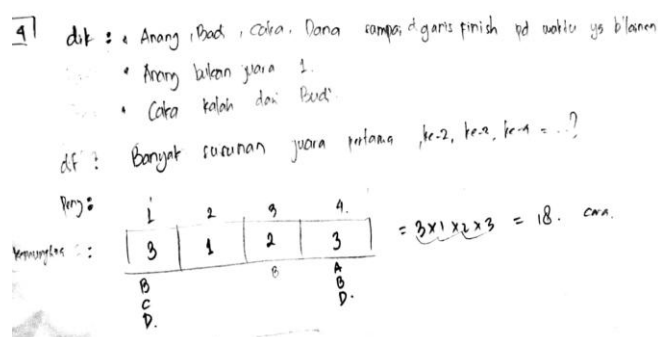 4] dik : • Anang, Budi, Caka, Dana sampai d garis finish pd waktu yg b'lainan
• Anang bukan juara 1.
• Caka kalah dari Budi.
dt ? Banyak susunan juara pertama, ke-2, ke-3, ke-4 = ..?
Peny :
1 2 3 4.
Kemungkinan : 3 1 2 3 = 3x1x2x3 = 18. cara.
B B A
C B
D. D.